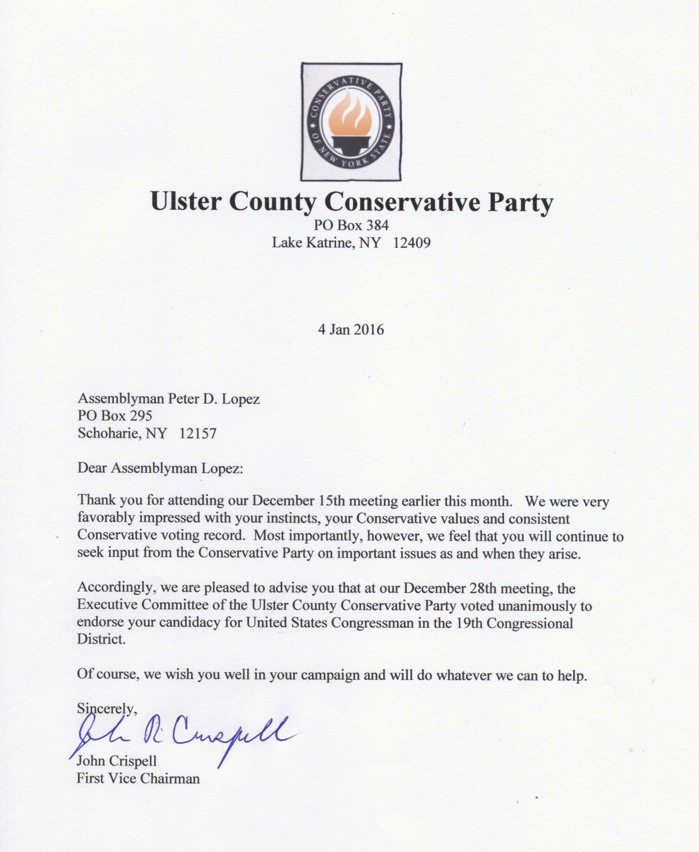 CONSERVATIVE PARTY
OF NEW YORK STATE
Ulster County Conservative Party
PO Box 384
Lake Katrine, NY 12409
4 Jan 2016
Assemblyman Peter D. Lopez
PO Box 295
Schoharie, NY 12157
Dear Assemblyman Lopez:
Thank you for attending our December 15th meeting earlier this month. We were very
favorably impressed with your instincts, your Conservative values and consistent
Conservative voting record. Most importantly, however, we feel that you will continue to
seek input from the Conservative Party on important issues as and when they arise.
Accordingly, we are pleased to advise you that at our December 28th meeting, the
Executive Committee of the Ulster County Conservative Party voted unanimously to
endorse your candidacy for United States Congressman in the 19th Congressional
District.
Of course, we wish you well in your campaign and will do whatever we can to help.
Sincerely,
John R Crispell
John Crispell
First Vice Chairman